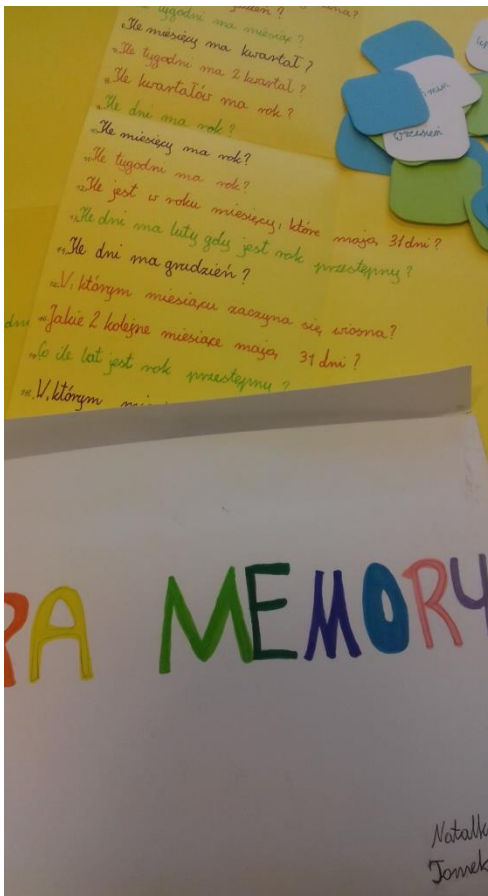 tygodni ma miesiąc?
Ile miesięcy ma kwartał?
Ile tygodni ma 2 kwartał?
Ile kwartałów ma rok?
Ile dni ma rok?
Ile miesięcy ma rok?
Ile tygodni ma rok?
Ile jest w roku miesięcy, które mają 31 dni?
Ile dni ma luty gdy jest rok przestępny?
Ile dni ma grudzień?
W którym miesiącu zaczyna się wiosna?
dni
Jakie 2 kolejne miesiące mają 31 dni?
Co ile lat jest rok przestępny?
W którym
wrzesień
RA MEMORY
Natalka
Tomek